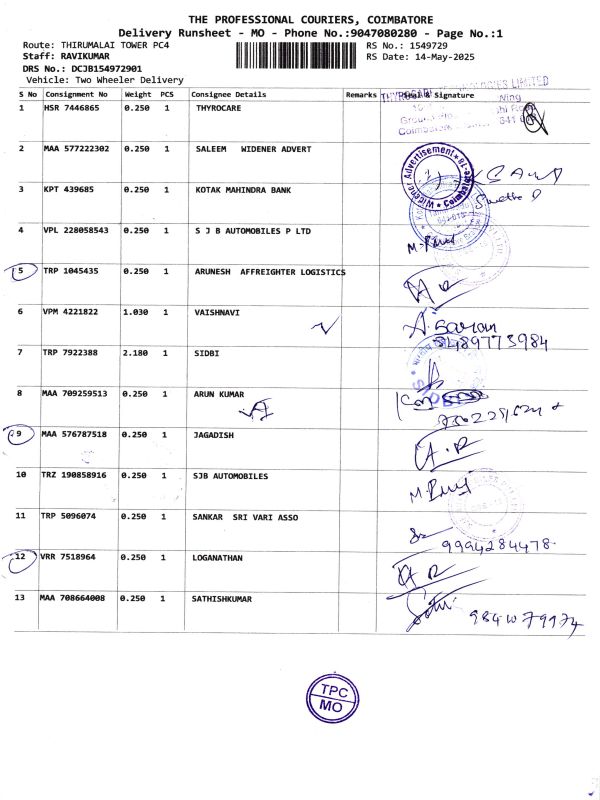 THE PROFESSIONAL COURIERS, COIMBATORE
Delivery Runsheet - MO - Phone No.:9047080280 - Page No.:1
Route: THIRUMALAI TOWER PC4 RS No.: 1549729
Staff: RAVIKUMAR RS Date: 14-May-2025
DRS No.: DCJB154972901
Vehicle: Two Wheeler Delivery
S No Consignment No Weight PCS Consignee Details Remarks & Signature
1 HSR 7446865 0.250 1 THYROCARE
2 MAA 577222302 0.250 1 SALEEM WIDENER ADVERT
Widener Advertisement
3 KPT 439685 0.250 1 KOTAK MAHINDRA BANK
4 VPL 228058543 0.250 1 S J B AUTOMOBILES P LTD
5 TRP 1045435 0.250 1 ARUNESH AFFREIGHTER LOGISTICS
6 VPM 4221822 1.030 1 VAISHNAVI
7 TRP 7922388 2.180 1 SIDBI
8 MAA 709259513 0.250 1 ARUN KUMAR
9 MAA 576787518 0.250 1 JAGADISH
10 TRZ 190858916 0.250 1 SJB AUTOMOBILES
11 TRP 5096074 0.250 1 SANKAR SRI VARI ASSO
9994284478
12 VRR 7518964 0.250 1 LOGANATHAN
13 MAA 708664008 0.250 1 SATHISHKUMAR
TPC
MO